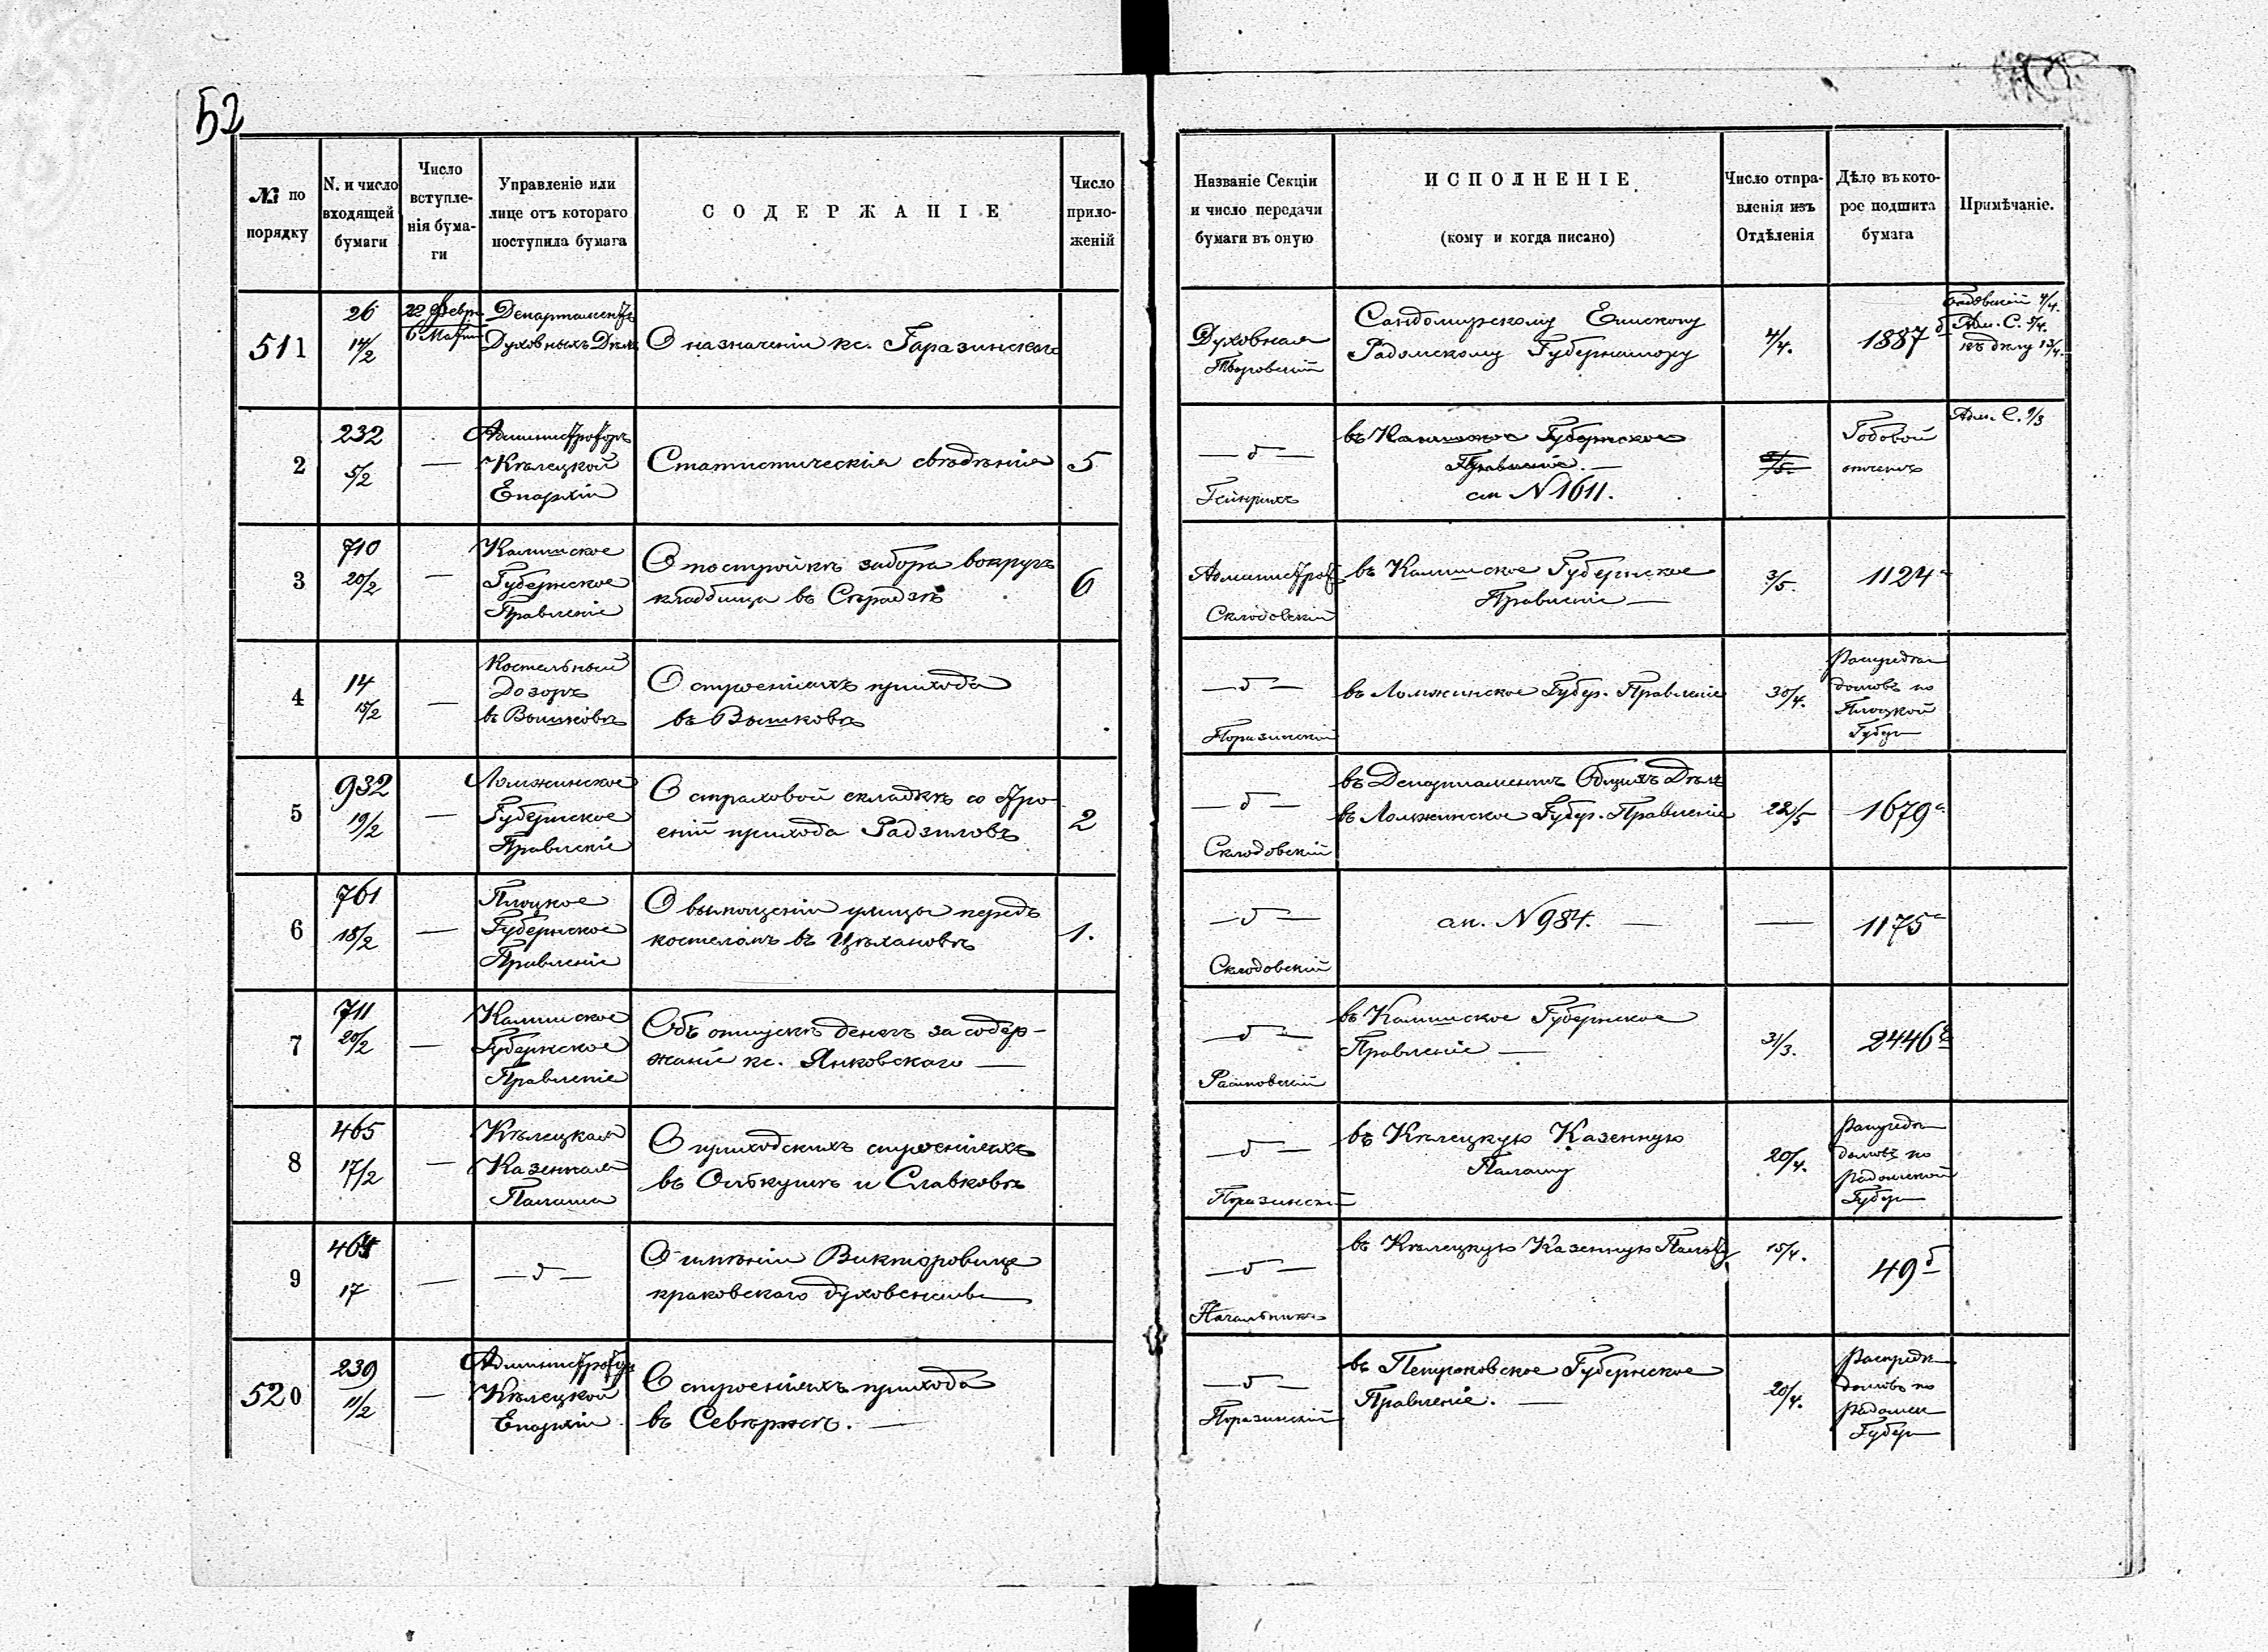 52
№ по порядку
N. и число входящей бумаги
Число вступле-нія бума-ги
Управленіе или лице отъ котораго поступила бумага
СОДЕРЖАНІЕ
Число прило-женій
Названіе Секціи и число передачи бумаги въ оную
ИСПОЛНЕНІЕ
(кому и когда писано)
Число отпра-вленія изъ Отдѣленія
Дѣло въ кото-рое подшита бумага
Примѣчаніе.
511
26
14/2
22 Февр.
6 Март
Департаментъ
Духовныхъ Дѣлъ
О назначеніи кс.
Духовная
Сандомирскому Епископу
Радомскому Губернатору
4/4.
1887
Адм. С. 5/4.
къ дѣлу 13/4.
2
232
5/2
—
Администраторъ
Кѣлецкой
Епархіи
Статистическія свѣдѣнія
5
— д —
Гейнрихъ
въ Калишское Губернское
Правленіе. —
см N 1611.
Годовой
отчетъ
Адм. С. 9/3
3
710
20/2
—
Калишское
Губернское
Правленіе
О постройкѣ забора вокругъ
кладбища въ Сѣрадзѣ
6
Администрат
Склодовскій
въ Калишское Губернское
Правленіе —
3/5.
1124 а
4
14
15/2
—
Костельный
Дозоръ
въ Вышковѣ
О строеніяхъ прихода
въ Вышковѣ
— д —
Поразинскій
въ Ломжинское Губер. Правленіе
30/4.
домовъ по
Плоцкой
Губер
5
932
19/2
—
Ломжинское
Губернское
Правленіе
О страховой складкѣ со стро-
еній прихода Радзиловъ
2
— д —
Склодовскій
въ Департаментъ Общихъ Дѣлъ
въ Ломжинское Губер. Правленіе
22/5
1679 а
6
761
18/2
—
Плоцкое
Губернское
Правленіе
О вымощеніи улицы передъ
костеломъ въ Цѣхановѣ
1.
— д —
Склодовскій
см. N 984. —
—
1175 а
7
711
20/2
—
Калишское
Губернское
Правленіе
Объ отпускѣ денегъ за содер-
жаніе кс. Янковскаго —
— д —
въ Калишское Губернское
Правленіе —
31/3.
2446
8
465
17/2
—
Кѣлецкая
Казенная
Палата
О приходскихъ строеніяхъ
въ Олькушѣ и Славковѣ
— д —
Поразинскій
въ Кѣлецкую Казенную
Палату
20/4.
домовъ по
Радомской
Губер
9
464
17
—
— д —
О имѣніи Викторовице
краковскаго духовенства
— д —
Начальникъ
въ Кѣлецкую Казенную Палату
15/4.
49 б
520
239
11/2
—
Администраторъ
Кѣлецкой
Епархіи
О строеніяхъ прихода
въ Севѣржѣ. —
— д —
Поразинскій
въ Петроковское Губернское
Правленіе. —
20/4.
домовъ по
Радомск
Губер